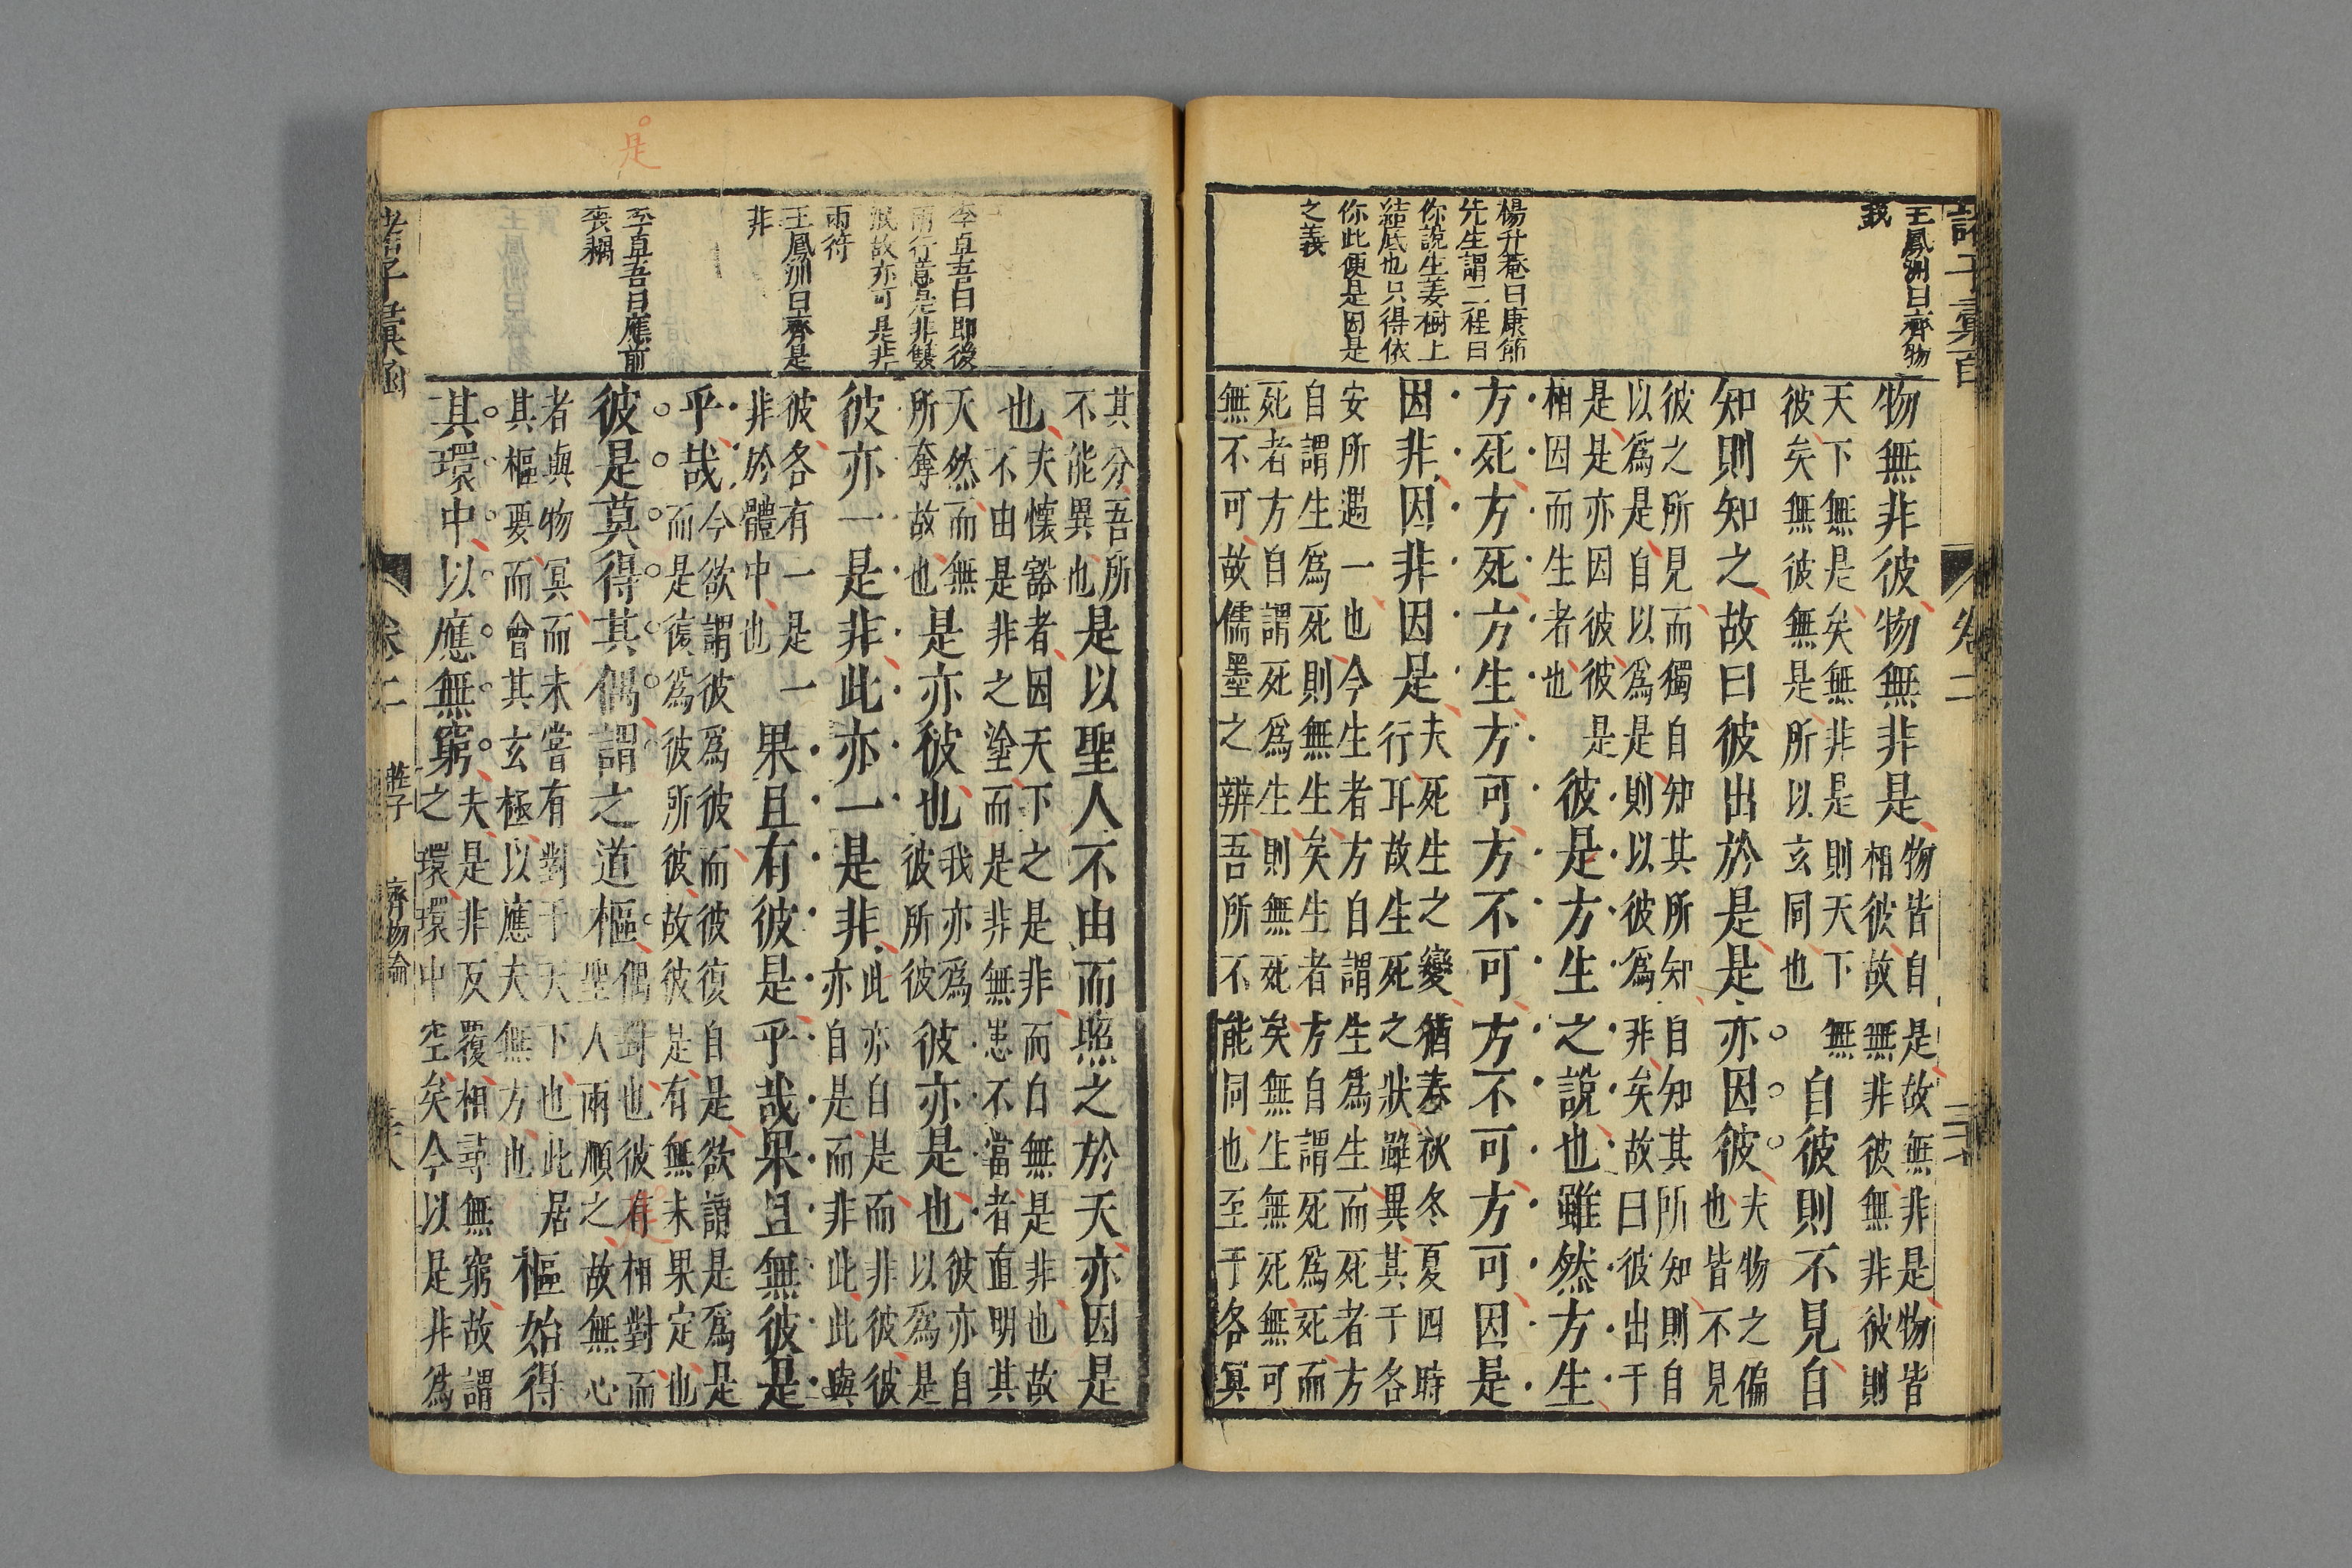 王鳳洲曰齊物
我
楊升菴曰康節
先生謂二程曰
你說生姜樹上
結底也只得依
你此便是因是
之義
物無非彼物無非是
物皆自是故無非是物皆
相彼故無非彼無非彼則
天下無是矣無非是則天下無
彼矣無彼無是所以玄同也
自彼則不見自
知則知之故曰彼出於是是亦因彼
夫物之偏
也皆不見
彼之所見而獨自知其所知自知其所知則自
以爲是自以爲是則以彼爲非矣故曰彼出于
是是亦因彼彼是
相因而生者也
彼是方生之說也雖然方生
方死方死方生方可方不可方不可方可因是
因非因非因是
夫死生之變猶春秋冬夏四時
行耳故生死之狀雖異其于各
安所遇一也今生者方自謂生爲生而死者方
自謂生爲死則無生矣生者方自謂死爲死而
死者方自謂死爲生則無死矣無生無死無可
無不可故儒墨之辨吾所不能同也至于各冥
李卓吾曰即後
兩行意是非雙
泯故亦可是非
兩符
王鳳洲曰齊是
非
李卓吾曰應前
喪耦
是
其分吾所
不能異也
是以聖人不由而照之於天亦因是
也
夫懷豁者因天下之是非而自無是非也故
不由是非之塗而是非無患不當者直明其
天然而無
所奪故也
是亦彼也
我亦爲
彼所彼
彼亦是也
彼亦自
以爲是
彼亦一是非此亦一是非
此亦自是而非彼彼
亦自是而非此此與
彼各有一是一
非於體中也
果且有彼是乎哉果且無彼是
乎哉
今欲謂彼爲彼而彼復自是欲謂是爲是
而是復爲彼所彼故彼是有無未果定也
彼是莫得其偶謂之道樞
偶對也彼有相對而
聖人兩順之故無心
者與物冥而未嘗有對于天下也此居
其樞要而會其玄極以應夫無方也
樞始得
其環中以應無窮
夫是非反覆相尋無窮故謂
之環環中空矣今以是非爲
卷二 莊子 齊物論